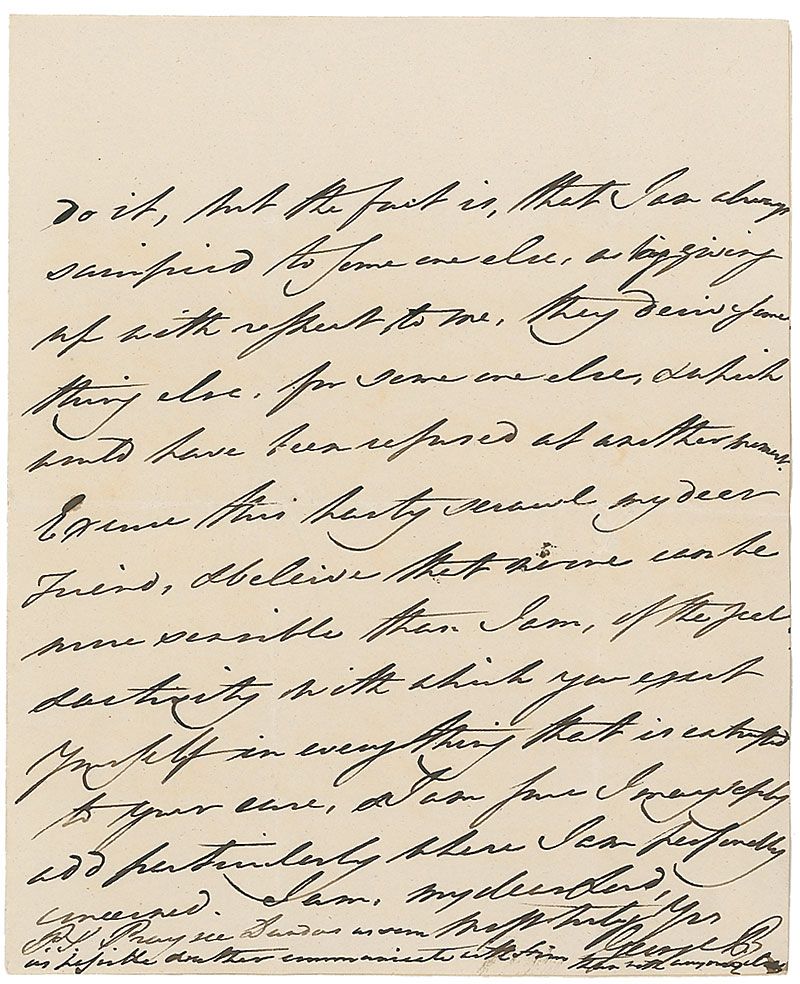 do it, but the fact is, that I am always
sacrificed to some one else, as by giving
up with respect to me, they derive some
thing else, for some one else, & which
would have been refused at another moment.
Excuse this hasty scrawl my dear
Friend, & beleive that no one can be
more sensible than I am, of the zeal
& activity with which you exert
yourself in everything that is entrusted
to your care, & I am sure I may safely
add particularly where I am personally
concerned. I am, my dear Lord,
most truly Yrs
George P.
P.S. Pray see Dundas as soon
as possible & rather communicate with him than with any one else